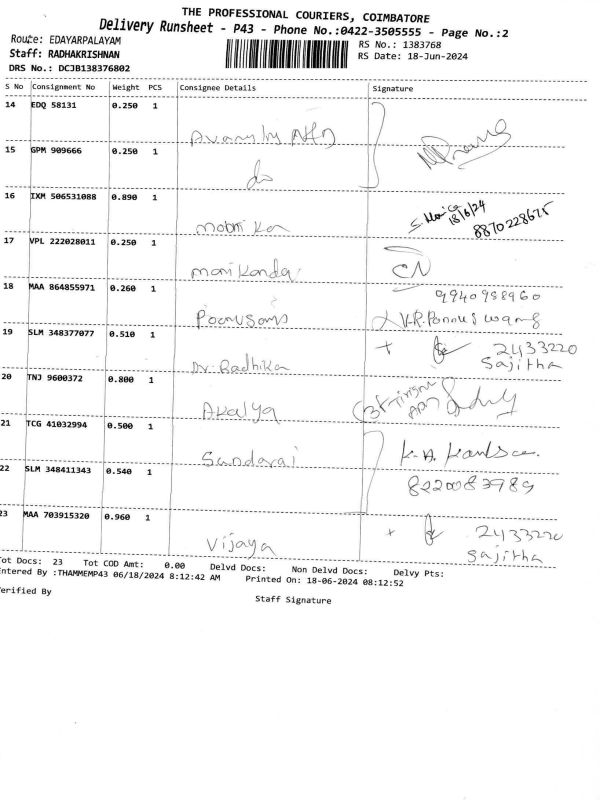 THE PROFESSIONAL COURIERS, COIMBATORE
Delivery Runsheet - P43 - Phone No.:0422-3505555 - Page No.:2
Route: EDAYARPALAYAM
RS No.: 1383768
Staff: RADHAKRISHNAN
RS Date: 18-Jun-2024
DRS No.: DCJB138376802
S No Consignment No Weight PCS Consignee Details Signature
14 EDQ 58131 0.250 1
15 GPM 909666 0.250 1
do
16 IXM 506531088 0.890 1
18/6/24
8870228675
17 VPL 222028011 0.250 1
manikanda CN
18 MAA 864855971 0.260 1
9940958960
V.R.Ponnuswamy
19 SLM 348377077 0.510 1
+ 2433220
Dr. Radhika Sajitha
20 TNJ 9600372 0.800 1
Akalya
21 TCG 41032994 0.500 1
Sundaraj
22 SLM 348411343 0.540 1
8220083989
23 MAA 703915320 0.960 1
+ 2433220
Vijaya Sajitha
Tot Docs: 23 Tot COD Amt: 0.00 Delvd Docs: Non Delvd Docs: Delvy Pts:
Entered By :THAMMEMP43 06/18/2024 8:12:42 AM Printed On: 18-06-2024 08:12:52
Verified By
Staff Signature